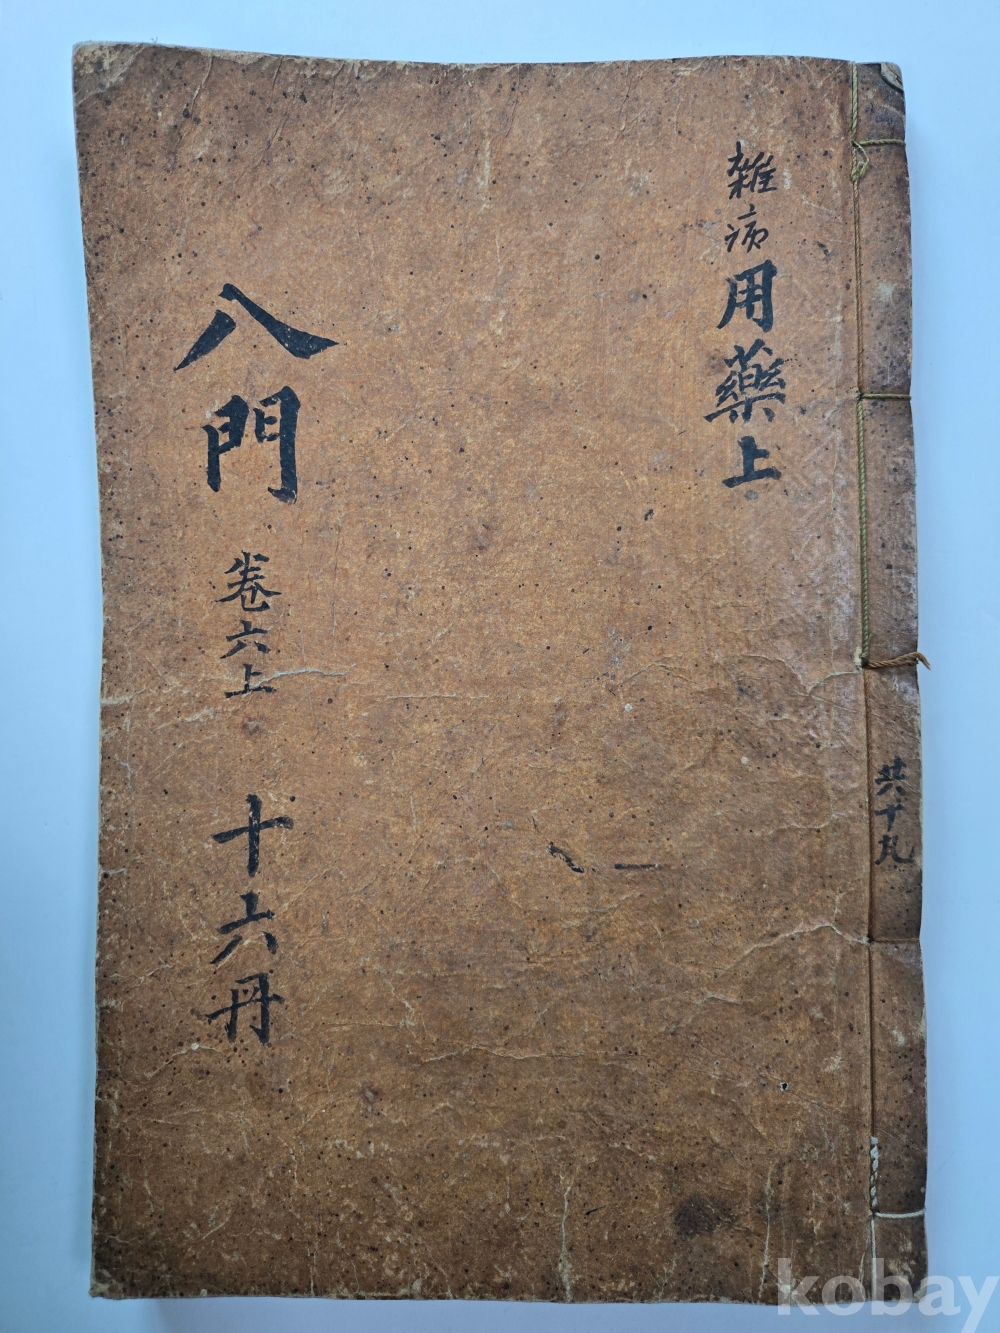 雜病用藥上
八門 卷六上 十六冊
共十九
kobay